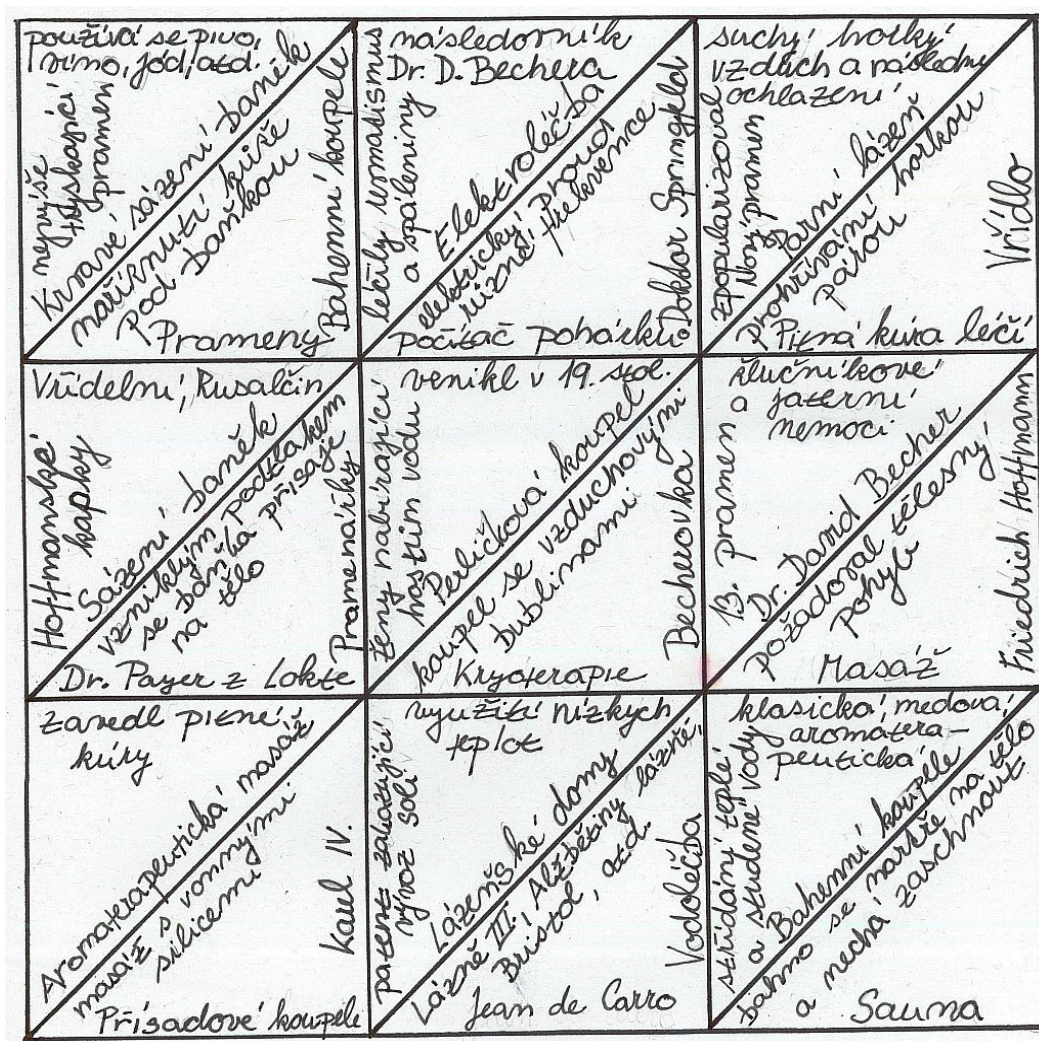 používá se pivo,
víno, jód, atd.
nejvýše
tryskající
pramen
Krvavé sázení baněk
naříznutí kůže
pod baňkou
Bahenní koupele
Prameny
následovník
Dr. D. Bechera
léčily revmatismus
a spáleniny
Elektroléčba
elektrický proud
různé frekvence
Doktor Springfeld
počítač pohárků
suchý horký
vzduch a následné
ochlazení
zpopularizoval
Nový pramen
Parní lázeň
prohřívání horkou
párou
Vřídlo
Pitná kúra léčí
Vřídelní, Rusalčin
Hoffmanské
kapky
Sázení baněk
vzniklým podtlakem
se baňka přisaje
na tělo
Pramenářky
Dr. Payer z Lokte
venikl v 19. stol.
ženy nabírající
hostům vodu
Perličková koupel
koupel se vzduchovými
bublinami
Becherovka
Kryoterapie
žlučníkové
a jaterní
nemoci
13. pramen
Dr. David Becher
požadoval tělesný
pohyb
Friedrich Hoffmann
Masáž
zavedl pitné
kúry
Aromaterapeutická masáž
masáž s vonnými
silicemi
Karel IV.
Přísadové koupele
využití nízkých
teplot
patent zakazující
vývoz soli
Lázeňské domy
Lázně III. Alžbětiny lázně,
Bristol, atd.
Vodoléčba
Jean de Carro
klasická, medová,
aromatera-
peutická
střídání teplé
a studené vody
Bahenní koupele
bahno se natře na tělo
a nechá zaschnout
Sauna